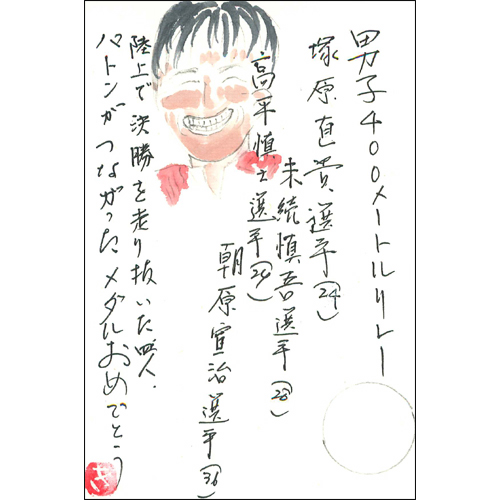 男子400メートルリレー
塚原直貴選手(24)
末続慎吾選手(28)
高平慎士選手(24)
朝原宣治選手(36)
陸上で決勝を走り抜いた四人.
バトンがつながったメダルおめでとう